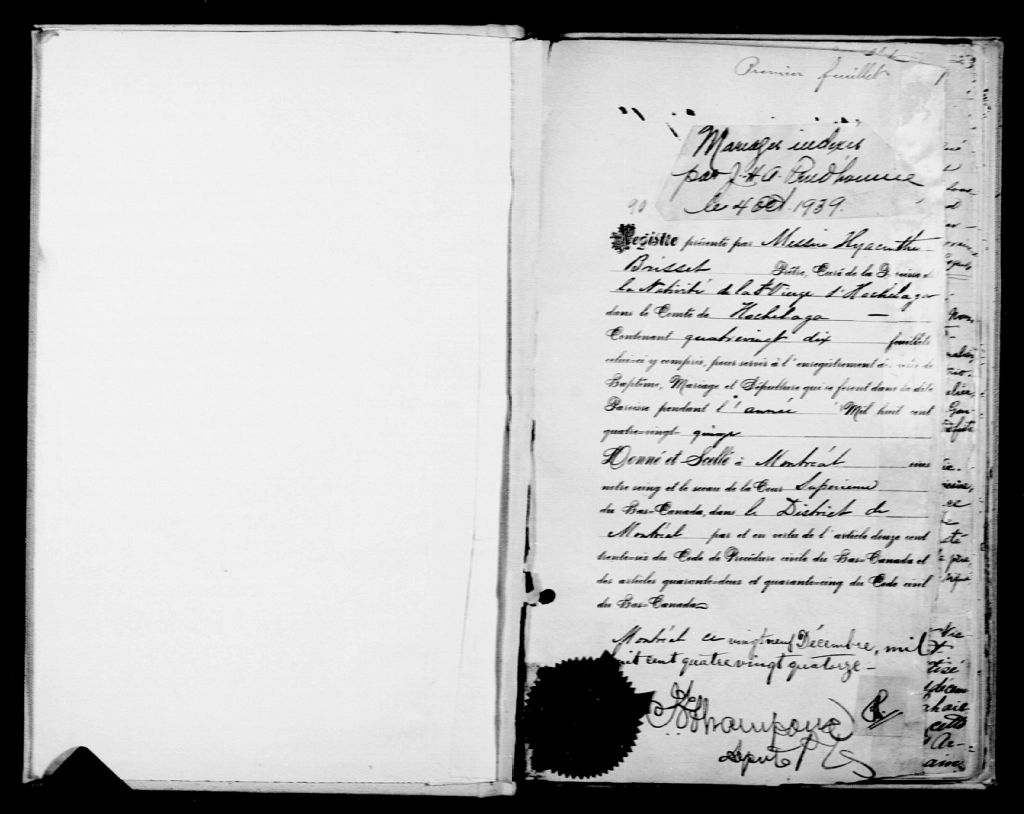 Premier feuillet
Mariages indexés
par J. H. A. Prud'homme
le 4 Oct. 1939.
90
Registre présenté par Messire Hyacinthe
Brisset Prêtre, Curé de la Paroisse de
la Nativité de la Ste Vierge d'Hochelaga
dans le Comté de Hochelaga
Contenant quatrevingt dix feuillets
celui-ci y compris, pour servir à l'enregistrement des actes de
Baptême, Mariage et Sépulture qui se feront dans la dite
Paroisse pendant l'année Mil huit cent
quatre-vingt quinze
Donné et Scellé à Montréal sous
notre seing et le sceau de la Cour Supérieure
du Bas-Canada, dans le District de
Montréal par et en vertu de l'article douze cent
trente-six du Code de Procédure civile du Bas-Canada et
des articles quarante-deux et quarante-cinq du Code civil
du Bas-Canada
Montréal ce vingt neuf Décembre, mil
huit cent quatre vingt quatorze